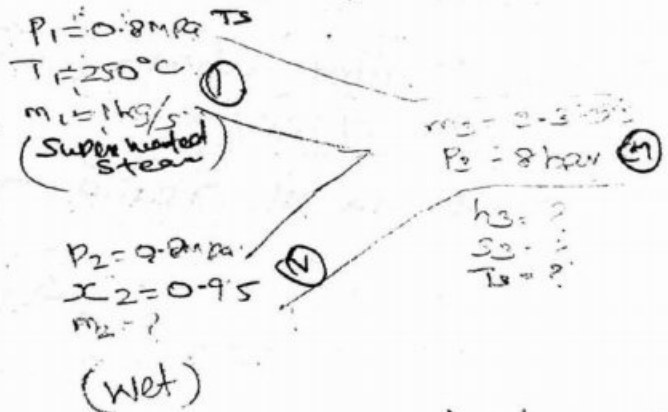 P₁ = 0.8 mpa TS
T₁ = 250°C ①
m₁ = 1 kg/s
(Super heated
steam)
P₃ = 8 bar
h₃ = ?
s₃ = ?
P₂ = 0.8 mpa
x₂ = 0.95
m₂ = ?
(Wet)